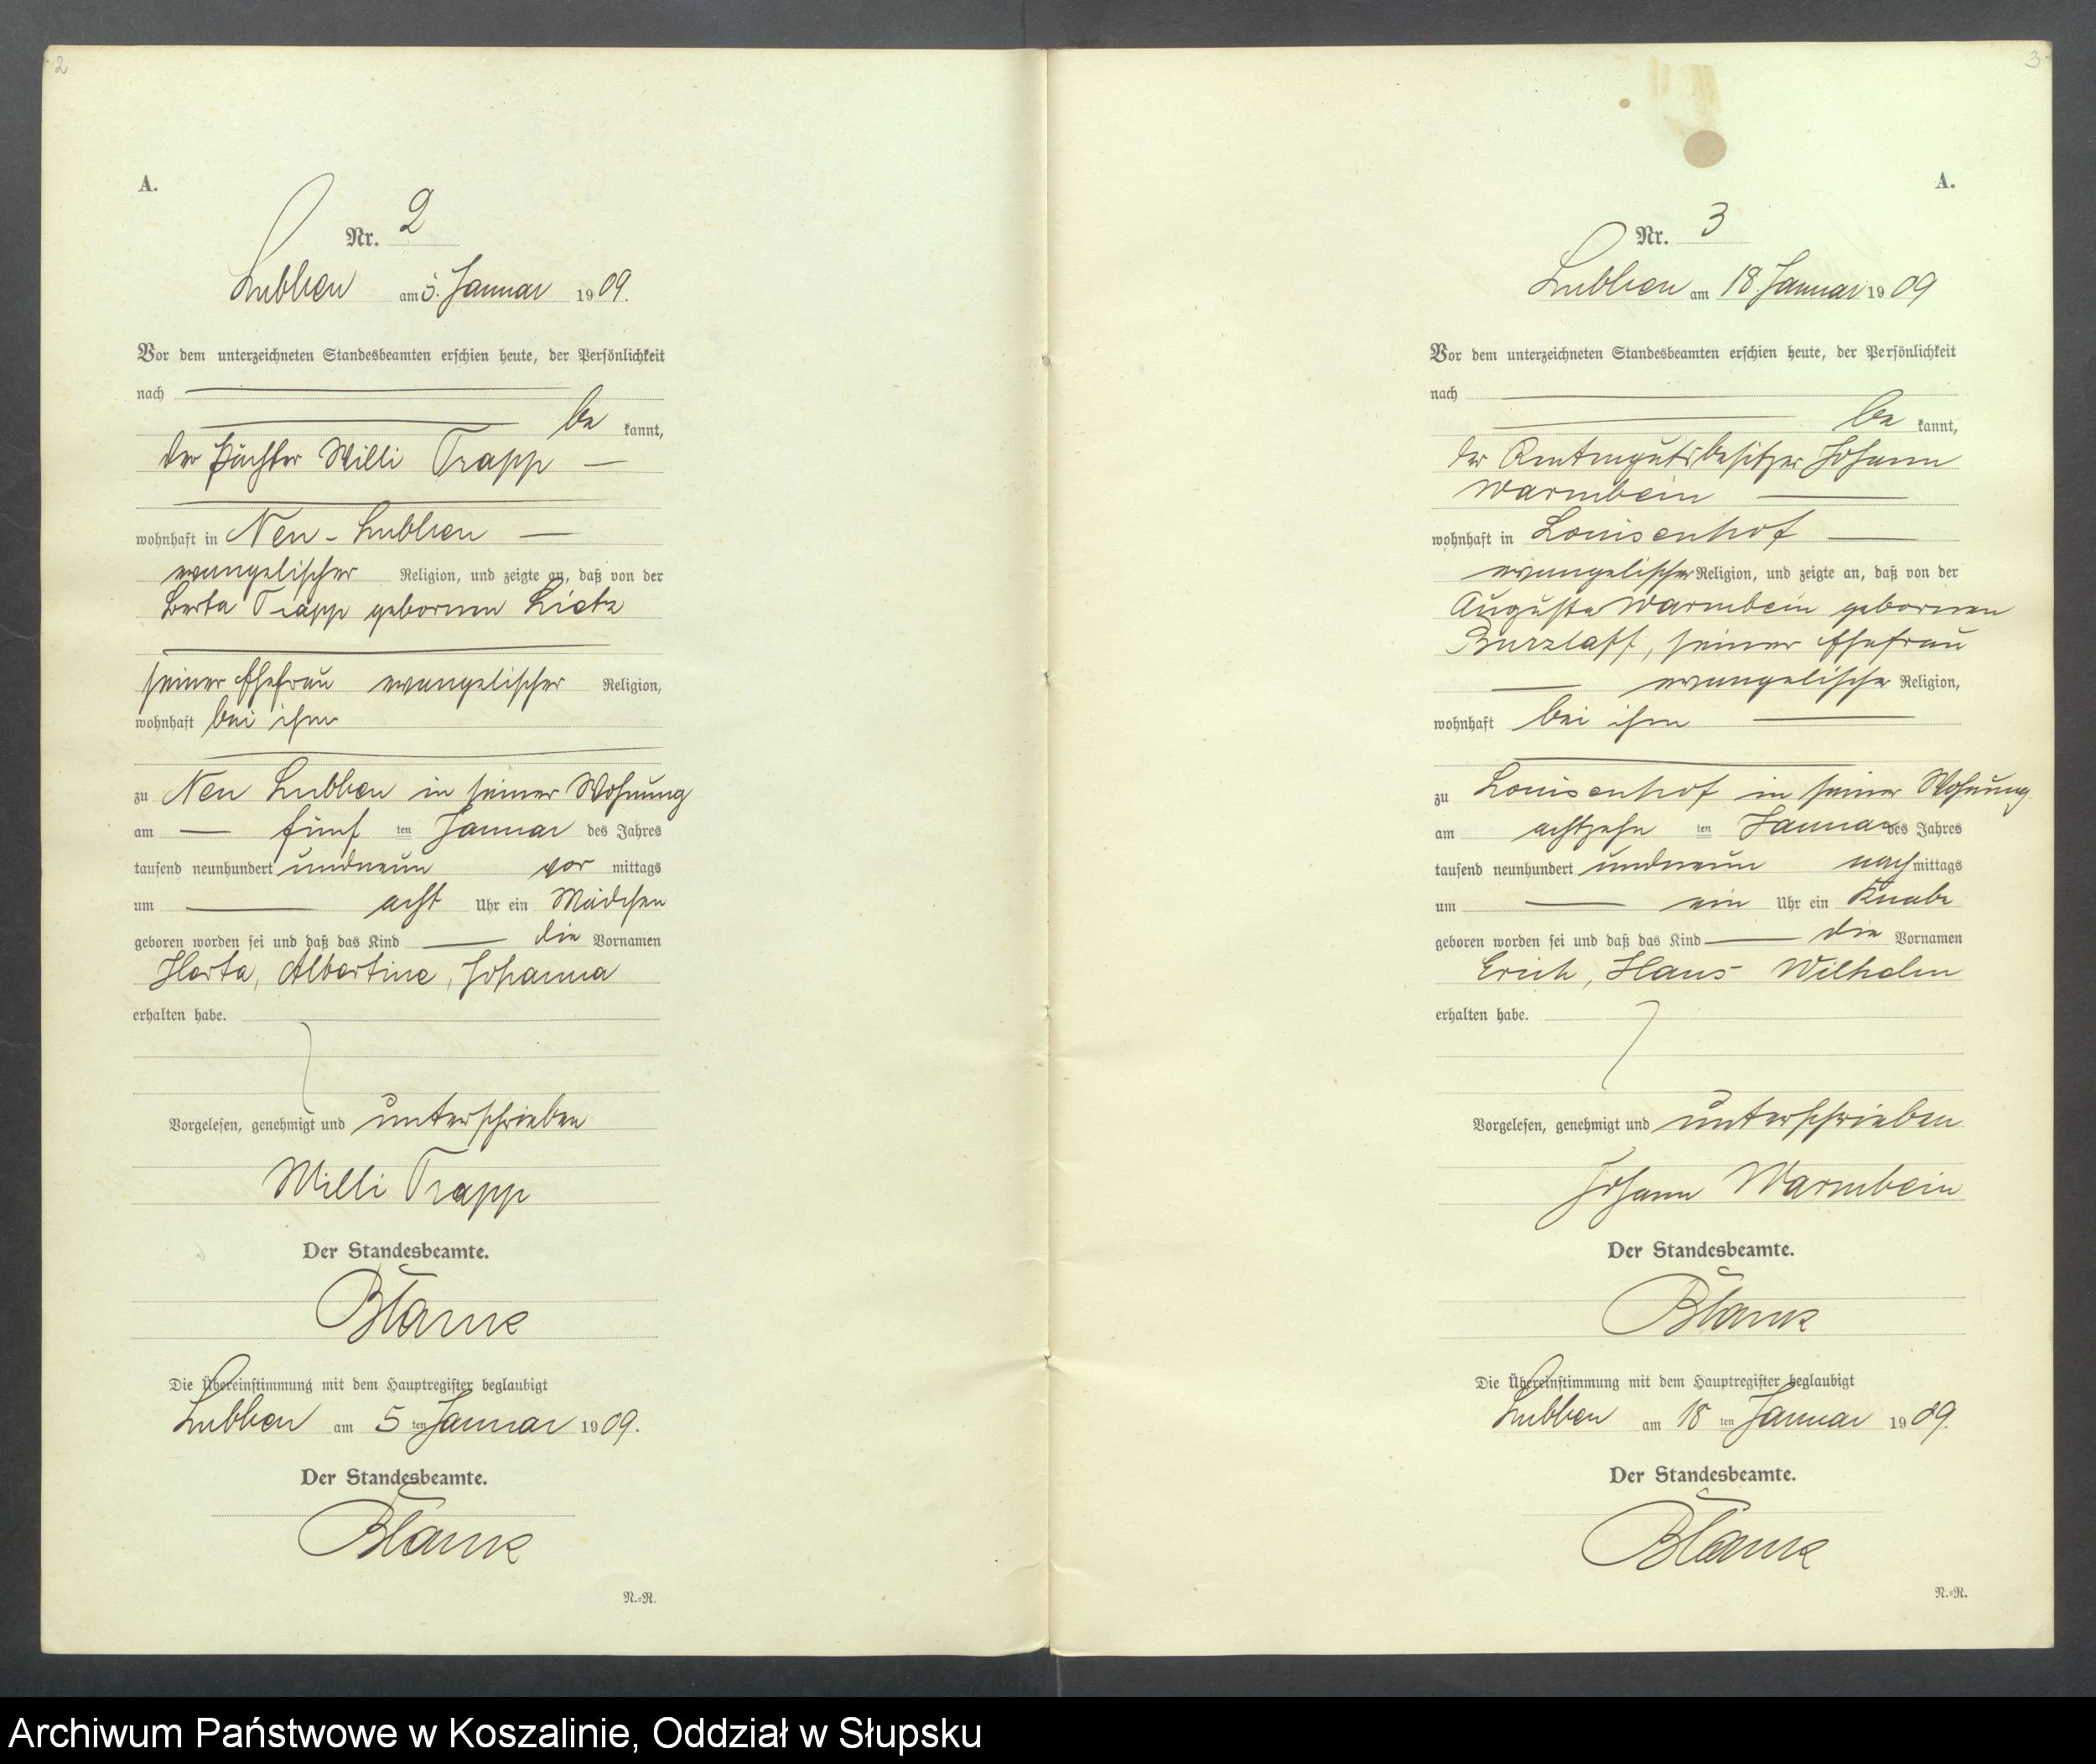 2
A.
Nr. 2
Lubben am 5. Januar 1909.
Vor dem unterzeichneten Standesbeamten erschien heute, der Persönlichkeit
nach
be kannt,
der Pächter Willi Trapp
wohnhaft in Neu-Lubben
evangelischer Religion, und zeigte an, daß von der
Berta Trapp gebornen Lietz
seiner Ehefrau evangelischer Religion,
wohnhaft bei ihm
zu Neu Lubben in seiner Wohnung
am fünf ten Januar des Jahres
tausend neunhundert undneun vor mittags
um acht Uhr ein Mädchen
geboren worden sei und daß das Kind die Vornamen
Herta, Albertine, Johanna
erhalten habe.
Vorgelesen, genehmigt und unterschrieben
Willi Trapp
Der Standesbeamte.
Blank
Die Übereinstimmung mit dem Hauptregister beglaubigt
Lubben am 5 ten Januar 1909.
Der Standesbeamte.
Blank
N.=R.
3
A.
Nr. 3
Lubben am 18. Januar 1909
Vor dem unterzeichneten Standesbeamten erschien heute, der Persönlichkeit
nach
be kannt,
der Rentengutsbesitzer Johann
Warmbein
wohnhaft in Louisenhof
evangelischer Religion, und zeigte an, daß von der
Auguste Warmbein gebornen
Burzlaff, seiner Ehefrau
evangelischer Religion,
wohnhaft bei ihm
zu Louisenhof in seiner Wohnung
am achtzehn ten Januar des Jahres
tausend neunhundert undneun nach mittags
um ein Uhr ein Knabe
geboren worden sei und daß das Kind die Vornamen
Erich, Hans Wilhelm
erhalten habe.
Vorgelesen, genehmigt und unterschrieben
Johann Warmbein
Der Standesbeamte.
Blank
Die Übereinstimmung mit dem Hauptregister beglaubigt
Lubben am 18 ten Januar 1909.
Der Standesbeamte.
Blank
N.=R.
Archiwum Państwowe w Koszalinie, Oddział w Słupsku